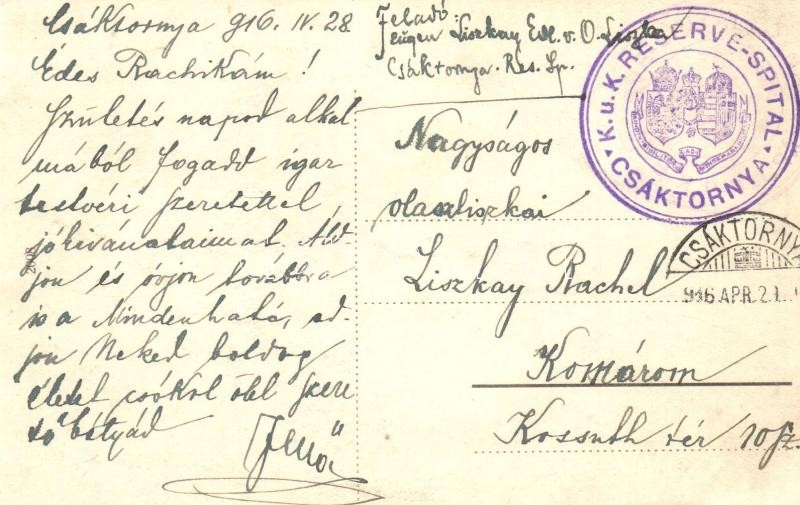 Csáktornya 916. IV. 28
Édes Rachikám!
Születés napod alkal
mából fogadd igaz
testvéri szeretettel
jókivánataimat. Áld-
jon és óvjon továbbra
is a Mindenható, ad-
jon Neked boldog
életet csókol ölel szere
tő bátyád
Jenő
2008
Feladó:
Eugen Liszkay Edl. v. O. Liszka
Csáktornya. Res. Sp.
K. u. K. RESERVE-SPITAL
CSÁKTORNYA
Nagyságos
olaszliszkai
Liszkay Rachel
Komárom
Kossuth tér 10 sz.
CSÁKTORNYA
916 APR. 2